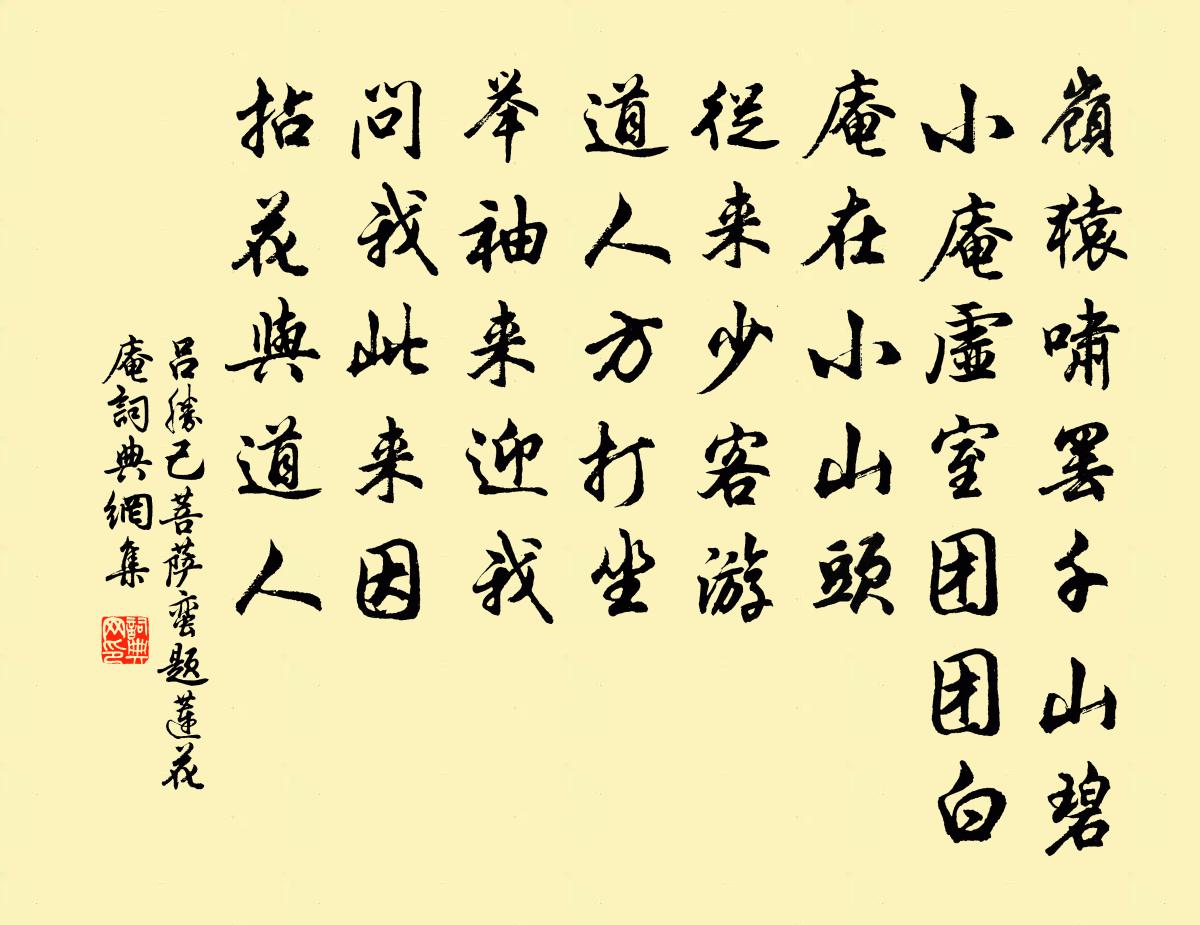 嶺猿啸罢千山碧
小庵虚室团团白
庵在小山頭
從来少客游
道人方打坐
举袖来迎我
問我此来因
拈花與道人
吕勝己菩萨蛮题蓮花
庵詞典網集
詞典网印